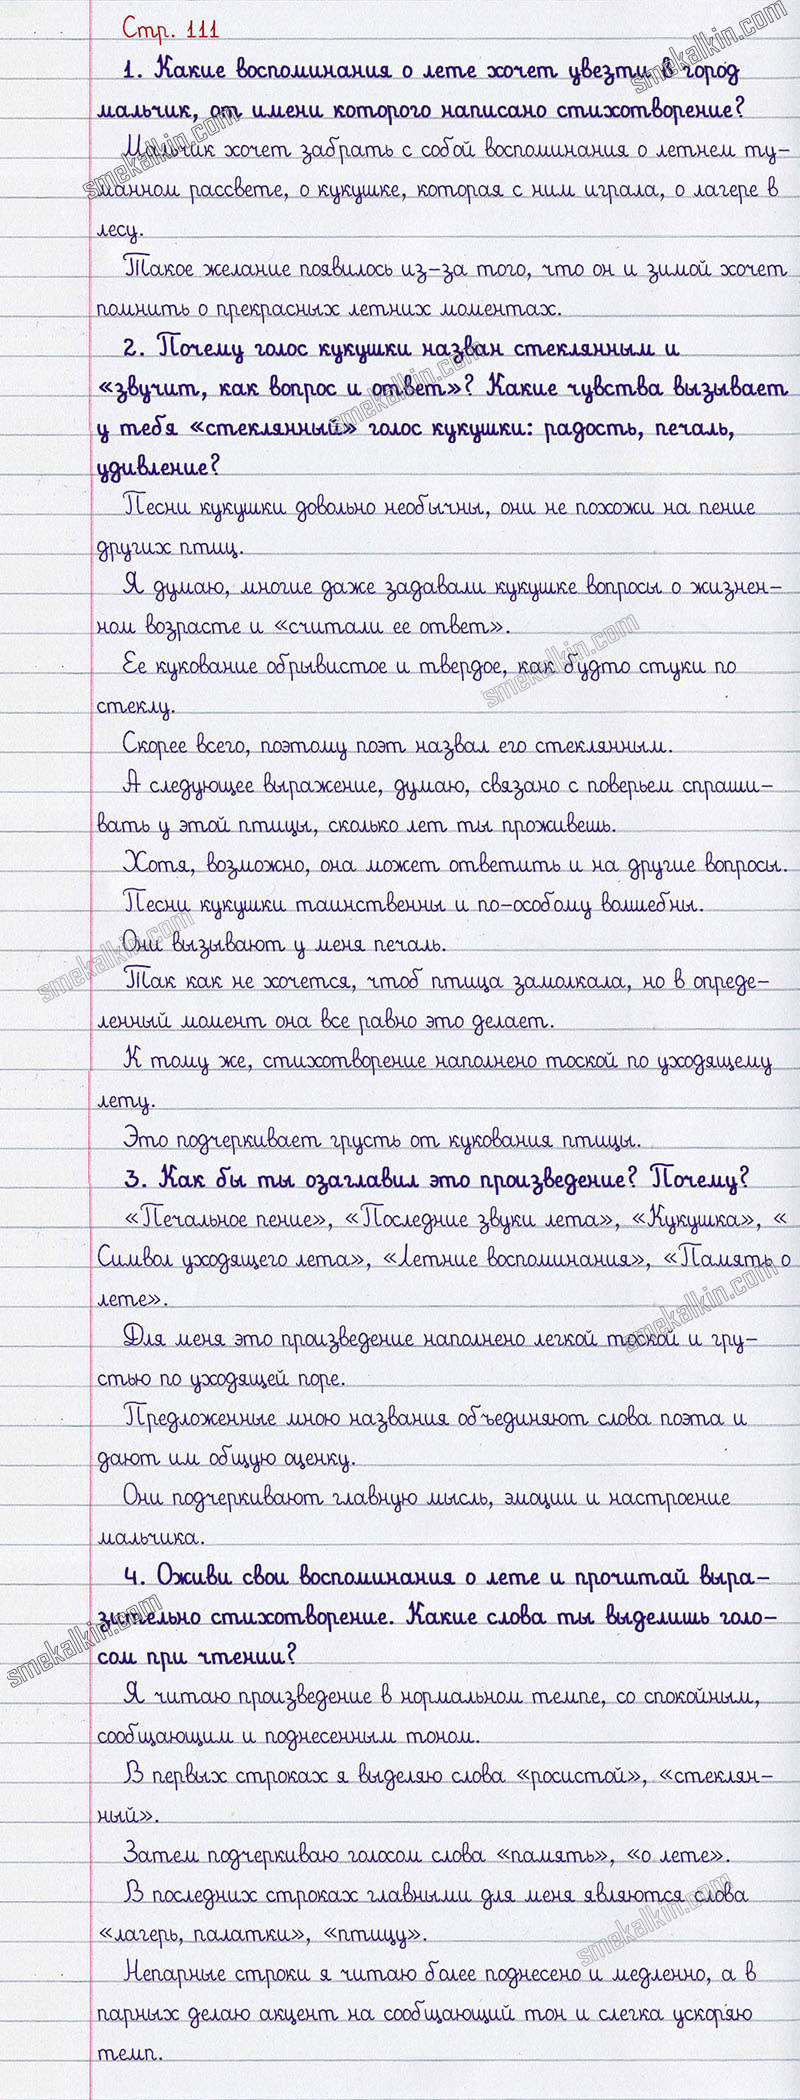 Стр. 111
1. Какие воспоминания о лете хочет увезти в город
мальчик, от имени которого написано стихотворение?
Мальчик хочет забрать с собой воспоминания о летнем ту-
манном рассвете, о кукушке, которая с ним играла, о лагере в
лесу.
Такое желание появилось из-за того, что он и зимой хочет
помнить о прекрасных летних моментах.
2. Почему голос кукушки назван стеклянным и
«звучит, как вопрос и ответ»? Какие чувства вызывает
у тебя «стеклянный» голос кукушки: радость, печаль,
удивление?
Песни кукушки довольно необычны, они не похожи на пение
других птиц.
Я думаю, многие даже задавали кукушке вопросы о жизнен-
ном возрасте и «считали ее ответ».
Ее кукование обрывистое и твердое, как будто стуки по
стеклу.
Скорее всего, поэтому поэт назвал его стеклянным.
А следующее выражение, думаю, связано с поверьем спраши-
вать у этой птицы, сколько лет ты проживешь.
Хотя, возможно, она может ответить и на другие вопросы.
Песни кукушки таинственны и по-особому волшебны.
Они вызывают у меня печаль.
Так как не хочется, чтоб птица замолкала, но в опреде-
ленный момент она все равно это делает.
К тому же, стихотворение наполнено тоской по уходящему
лету.
Это подчеркивает грусть от кукования птицы.
3. Как бы ты озаглавил это произведение? Почему?
«Печальное пение», «Последние звуки лета», «Кукушка», «
Символ уходящего лета», «Летние воспоминания», «Память о
лете».
Для меня это произведение наполнено легкой тоской и гру-
стью по уходящей поре.
Предложенные мною названия объединяют слова поэта и
дают им общую оценку.
Они подчеркивают главную мысль, эмоции и настроение
мальчика.
4. Оживи свои воспоминания о лете и прочитай выра-
зительно стихотворение. Какие слова ты выделишь голо-
сом при чтении?
Я читаю произведение в нормальном темпе, со спокойным,
сообщающим и поднесенным тоном.
В первых строках я выделяю слова «росистой», «стеклян-
ный».
Затем подчеркиваю голосом слова «память», «о лете».
В последних строках главными для меня являются слова
«лагерь, палатки», «птицу».
Непарные строки я читаю более поднесено и медленно, а в
парных делаю акцент на сообщающий тон и слегка ускоряю
темп.
smekalkin.com
smekalkin.com
smekalkin.com
smekalkin.com
smekalkin.com
smekalkin.com
smekalkin.com
smekalkin.com